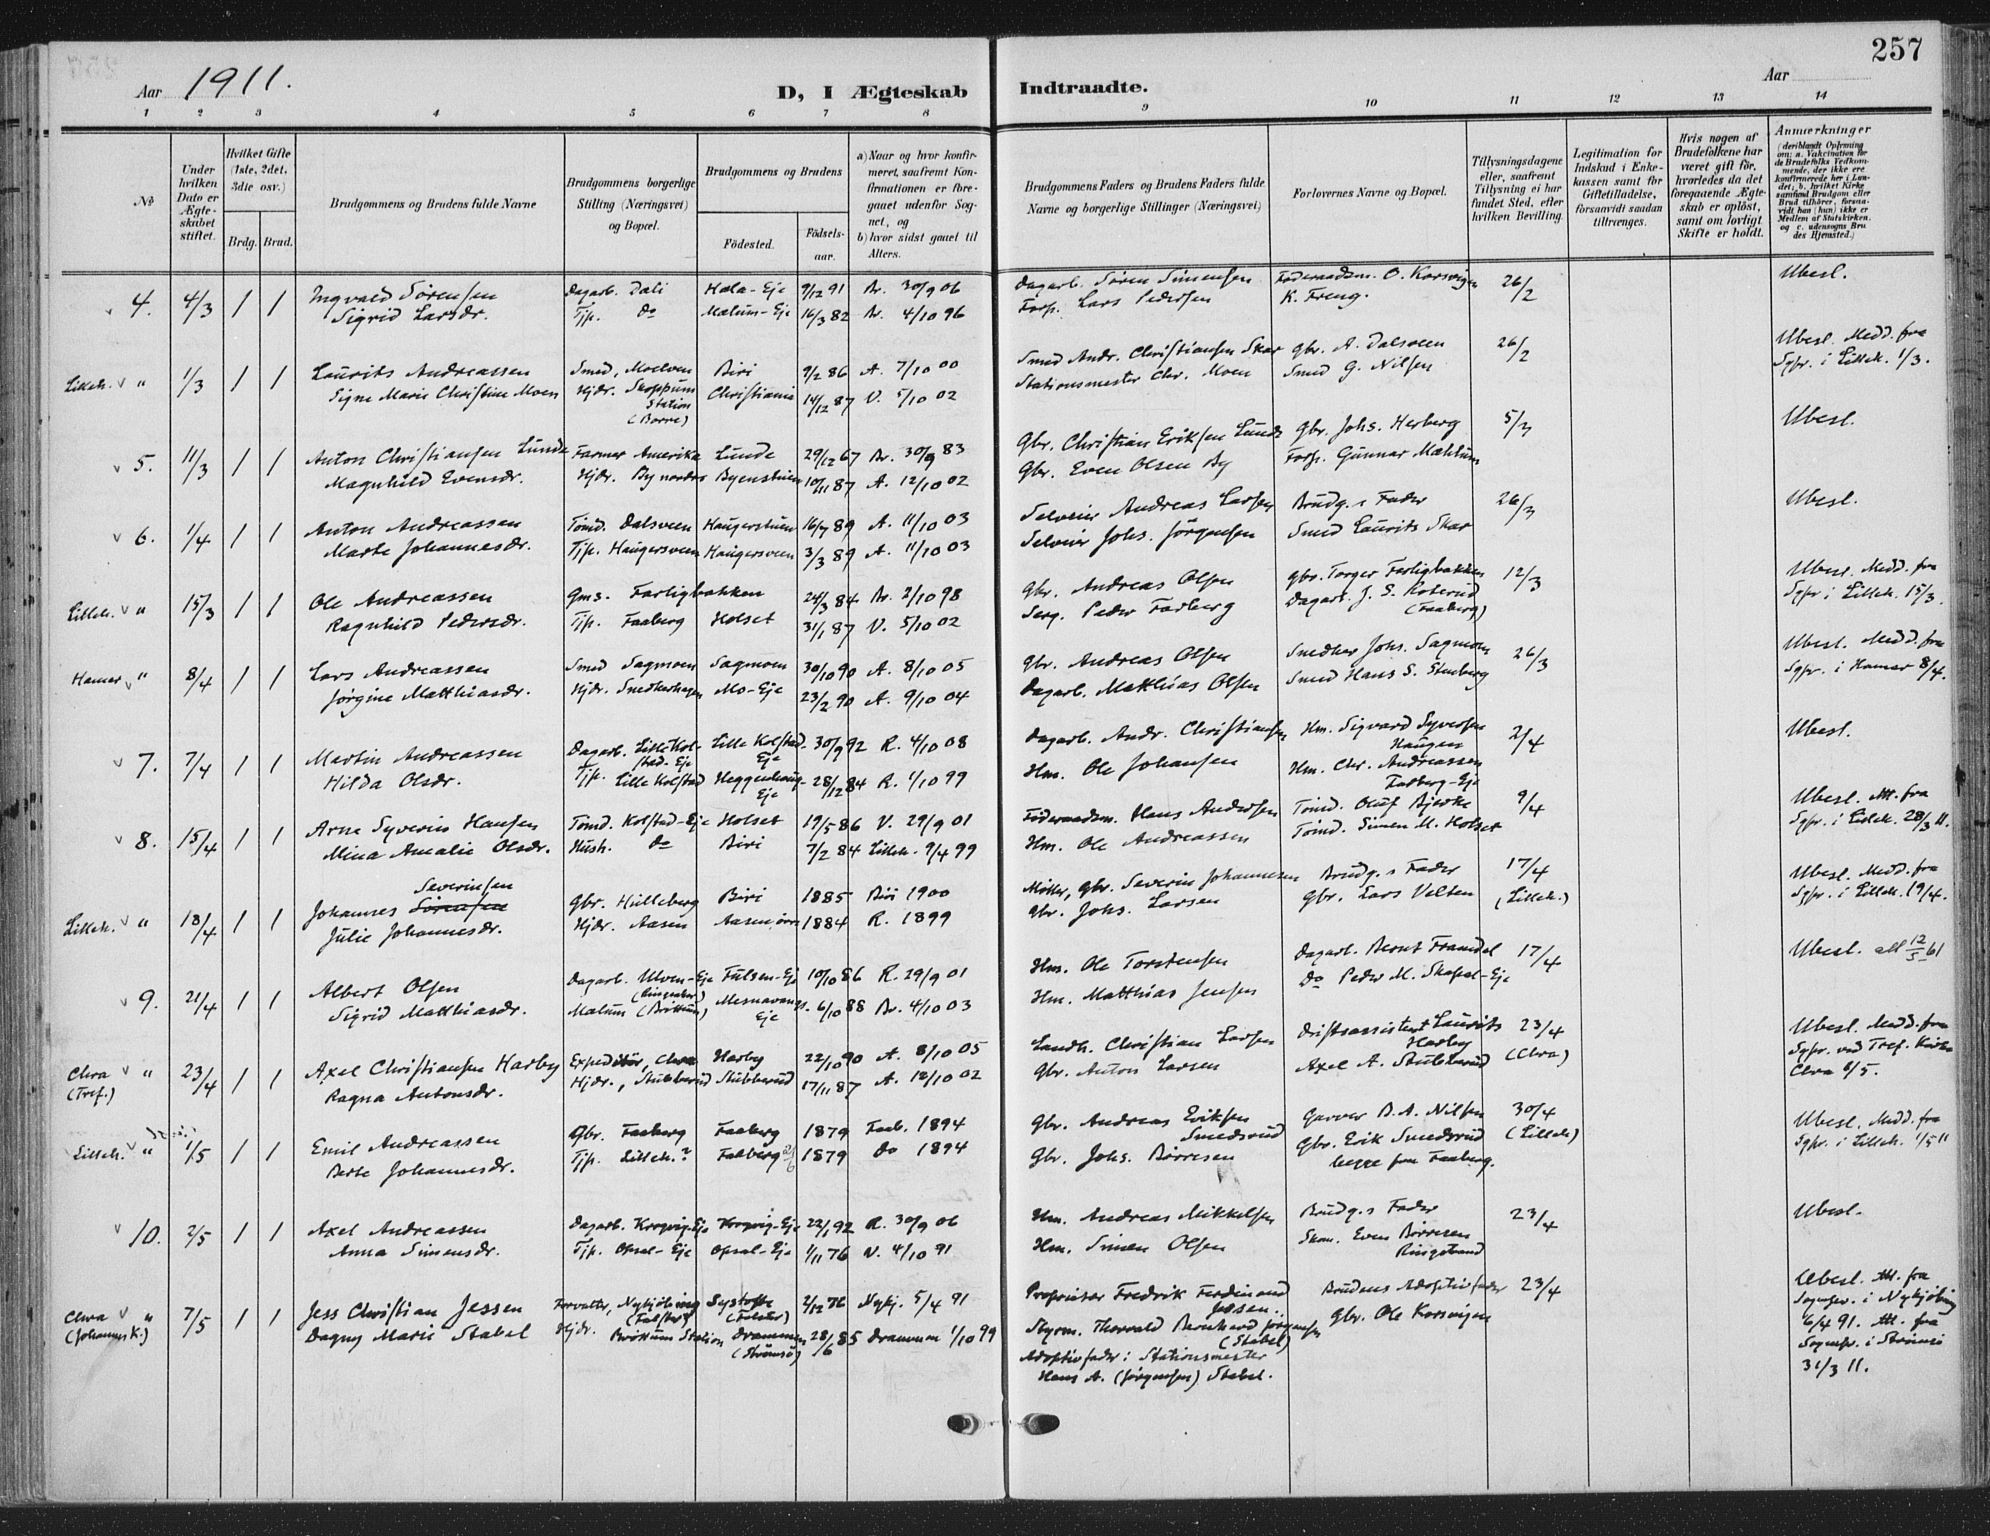 257
Aar 1911.
D, I Ægteskab Indtraadte.
Aar
1 2 3 4 5 6 7 8 9 10 11 12 13 14
No
Under hvilken Dato er Ægteskabet stiftet.
Hvilket Gifte (1ste, 2det, 3die osv.)
Brdg. Brud.
Brudgommens og Brudens fulde Navne
Brudgommens borgerlige Stilling (Næringsvei) og Bopæl.
Brudgommens og Brudens
Födested.
Födselsaar.
a) Naar og hvor konfirmeret, saafremt Konfirmationen er foregaaet udenfor Sognet, og
b) hvor sidst gaaet til Alters.
Brudgommens Faders og Brudens Faders fulde Navne og borgerlige Stillinger (Næringsvei)
Forlovernes Navne og Bopæl.
Tillysningsdagene eller, saafremt Tillysning ei har fundet Sted, efter hvilken Bevilling.
Legitimation for Indskud i Enkekassen samt for Giftetilladelse, forsaavidt saadan tiltrænges.
Hvis nogen af Brudefolkene har været gift för, hvorledes da det foregaaende Ægteskab er oplöst, samt om lovligt Skifte er holdt.
Anmærkninger
(deriblandt Oplysning om: a. Vakcination for de Brudefolks Vedkommende, der ikke ere konfirmerede her i Landet; b. hvilket Kirkesamfund Brudgom eller Brud tilhörer, forsaavidt han (hun) ikke er Medlem af Statskirken, og c. udensogns Brudes Hjemsted.)
4. 4/3 1 1 Ingvald Sørensen Dagarb. Dali Hæla-Eje 9/12 91 Br. 30/9 06 Dagarb. Søren Simensen Føderaadsm. O. Korsvigen 26/2 Ubesl.
Sigrid Larsdr. Tjp. Do Mælum-Eje 16/3 82 Br. 4/10 96 Forp. Lars Pedersen K. Freng.
Lilleh. " 1/3 1 1 Laurits Andreassen Smed, Moelven Biri 9/2 86 A. 7/10 00 Smed Andr. Christiansen Skar Gbr. A. Dalsveen 26/2 Ubesl. Medd. fra
Signe Marie Christine Moen Hjdr. Skoppum Station (Borre) Christiania 14/12 87 V. 5/10 02 Stationsmester Chr. Moen Smed G. Nilsen Sgpr. i Lilleh. 1/3.
5. 11/3 1 1 Anton Christiansen Lunde Farmer Amerika Lunde 29/12 67 Br. 30/9 83 Gbr. Christian Eriksen Lunde Gbr. Johs. Herberg 5/3 Ubesl.
Magnhild Evensdr. Hjdr. By nordre Byenstuen 10/11 87 A. 12/10 02 Gbr. Even Olsen By Forp. Gunnar Mæhlum
6. 1/4 1 1 Anton Andreassen Tömd. Dalsveen Haugerstuen 16/7 89 A. 11/10 03 Selveier Andreas Larsen Brudg.s Fader 26/3 Ubesl.
Marte Johannesdr. Tjp. Haugersveen Haugersveen 3/3 89 A. 11/10 03 Selveier Johs. Jörgensen Smed Laurits Skar
Lilleh. " 15/3 1 1 Ole Andreassen Gms. Farligbakken 24/3 84 Br. 2/10 98 Gbr. Andreas Olsen Gbr. Torger Farligbakken 12/3 Ubesl. Medd. fra
Ragnhild Pedersdr. Tjp. Faaberg Holset 31/1 87 V. 5/10 02 Serg. Peder Farberg Dagarb. J. S. Roterud (Faaberg) Sgpr i Lilleh. 15/3.
Hamar " 8/4 1 1 Lars Andreassen Smed Sagmoen Sagmoen 30/10 90 A. 8/10 05 Gbr. Andreas Olsen Johs. Sagmoen 26/3 Ubesl. Medd. fra
Jörgine Matthiasdr. Hjdr. Smedherhagen Mo-Eje 23/2 90 A. 9/10 04 Dagarb. Matthias Olsen Smed Hans S. Stenberg Sgpr. i Hamar 8/4.
7. 7/4 1 1 Martin Andreassen Dagarb. Lille Kolstad-Eje Lille Kolstad-Eje 30/9 92 R. 4/10 08 Dagarb. Andr. Christiansen Hm. Sigvard Syversen Haugen 2/4 Ubesl.
Hilda Olsdr. Tjp. Lille Kolstad Heggenhaug-Eje 28/12 84 R. 1/10 99 Hm. Ole Johansen Hm. Chr. Andreassen Farberg-Eje
8. 15/4 1 1 Arne Syverin Hansen Tömd. Kolstad-Eje Holset 19/5 86 V. 29/9 01 Föderaadsm. Hans Andersen Tömd. Oluf Bjerke 9/4 Ubesl. Att. fra
Mina Amalie Olsdr. Hush. Do Biri 7/2 84 Lilleh. 9/4 99 Hm. Ole Andreassen Tömd. Simen M. Holset Sgpr. i Lilleh. 28/3 11.
Lilleh. " 18/4 1 1 Johannes Sørensen Severinsen Gbr. Hulleberg Biri 1885 Biri 1900 Möller, Gbr. Severin Johannesen Brudg.s Fader 17/4 Ubesl. Medd. fra
Julie Johannesdr. Hjdr. Aasen Aasen, övre 1884 R. 1899 Gbr. Johs. Larsen Gbr. Lars Velten (Lilleh.) Sgpr. i Lilleh. 19/4.
9. 21/4 1 1 Albert Olsen Dagarb. Ulven-Eje (Ringsaker) Fulsen-Eje 10/10 86 R. 29/9 01 Hm. Ole Torstensen Dagarb. Bernt Framdal 17/4 Ubesl. att 12/5 61
Sigrid Matthiasdr. Mælum (Bröttum) Mesnavangs-Eje 6/10 88 Br. 4/10 03 Hm. Matthias Jensen Do Peder M. Skapal-Eje
Chra (Tref.) " 23/4 1 1 Axel Christiansen Harby Expeditör, Chra Harby 22/10 90 A. 8/10 05 Landh. Christian Larsen Driftsassistent Laurits Harby 23/4 Ubesl. Medd. fra
Ragna Antonsdr. Hjdr., Stubberud Stubberud 17/11 87 A. 12/10 02 Gbr. Anton Larsen Axel A. Stubberud (Chra) Sgpr. ved Tref. Kirke Chra 6/5.
Lilleh. " 1/5 1 1 Emil Andreassen Gbr. Faaberg Faaberg 1879 Faab. 1894 Gbr. Andreas Eriksen Smedsrud Garver B. A. Nilsen 30/4 Ubesl. Medd. fra
Berte Johannesdr. Tjp. Lilleh.? Faaberg 1879 Do 1894 Gbr. Johs. Börresen Gbr. Erik Smedsrud begge fra Faaberg. (Lilleh) Sgpr. i Lilleh. 1/5 11
10. 2/5 1 1 Axel Andreassen Dagarb. Krogvig-Eje Krogvig-Eje 22/1 92 R. 30/9 06 Hm. Andreas Mikkelsen Brudg.s Fader 23/4 Ubesl.
Anna Simensdr. Tjp. Opsal-Eje Opsal-Eje 1/11 76 V. 4/10 91 Hm. Simen Olsen Skom. Even Börresen Ringstrand
Chra (Johannes K.) " 7/5 1 1 Jess Christian Jessen Forvalter, Nykjöbing (Falster) Systofte (Falster) 2/12 76 Nykj. 5/4 91 Proprietær Fredrik Ferdinand Jessen. Brudens Adoptivfader 23/4 Ubesl. Att. fra
Dagny Marie Stabel Hjdr. Bröttum Station Drammen (Strömsö) 28/6 85 Drammen 1/10 99 Styrm. Thorvald Bernhard Jörgensen (Stabel) Gbr. Ole Korsvigen Sognepr. i Nykjöbing
Adoptivfader: Stationsmester 6/4 91. Att. fra
Hans A. (Jörgensen) Stabel. Sognepr. i Strömsö
31/3 11.